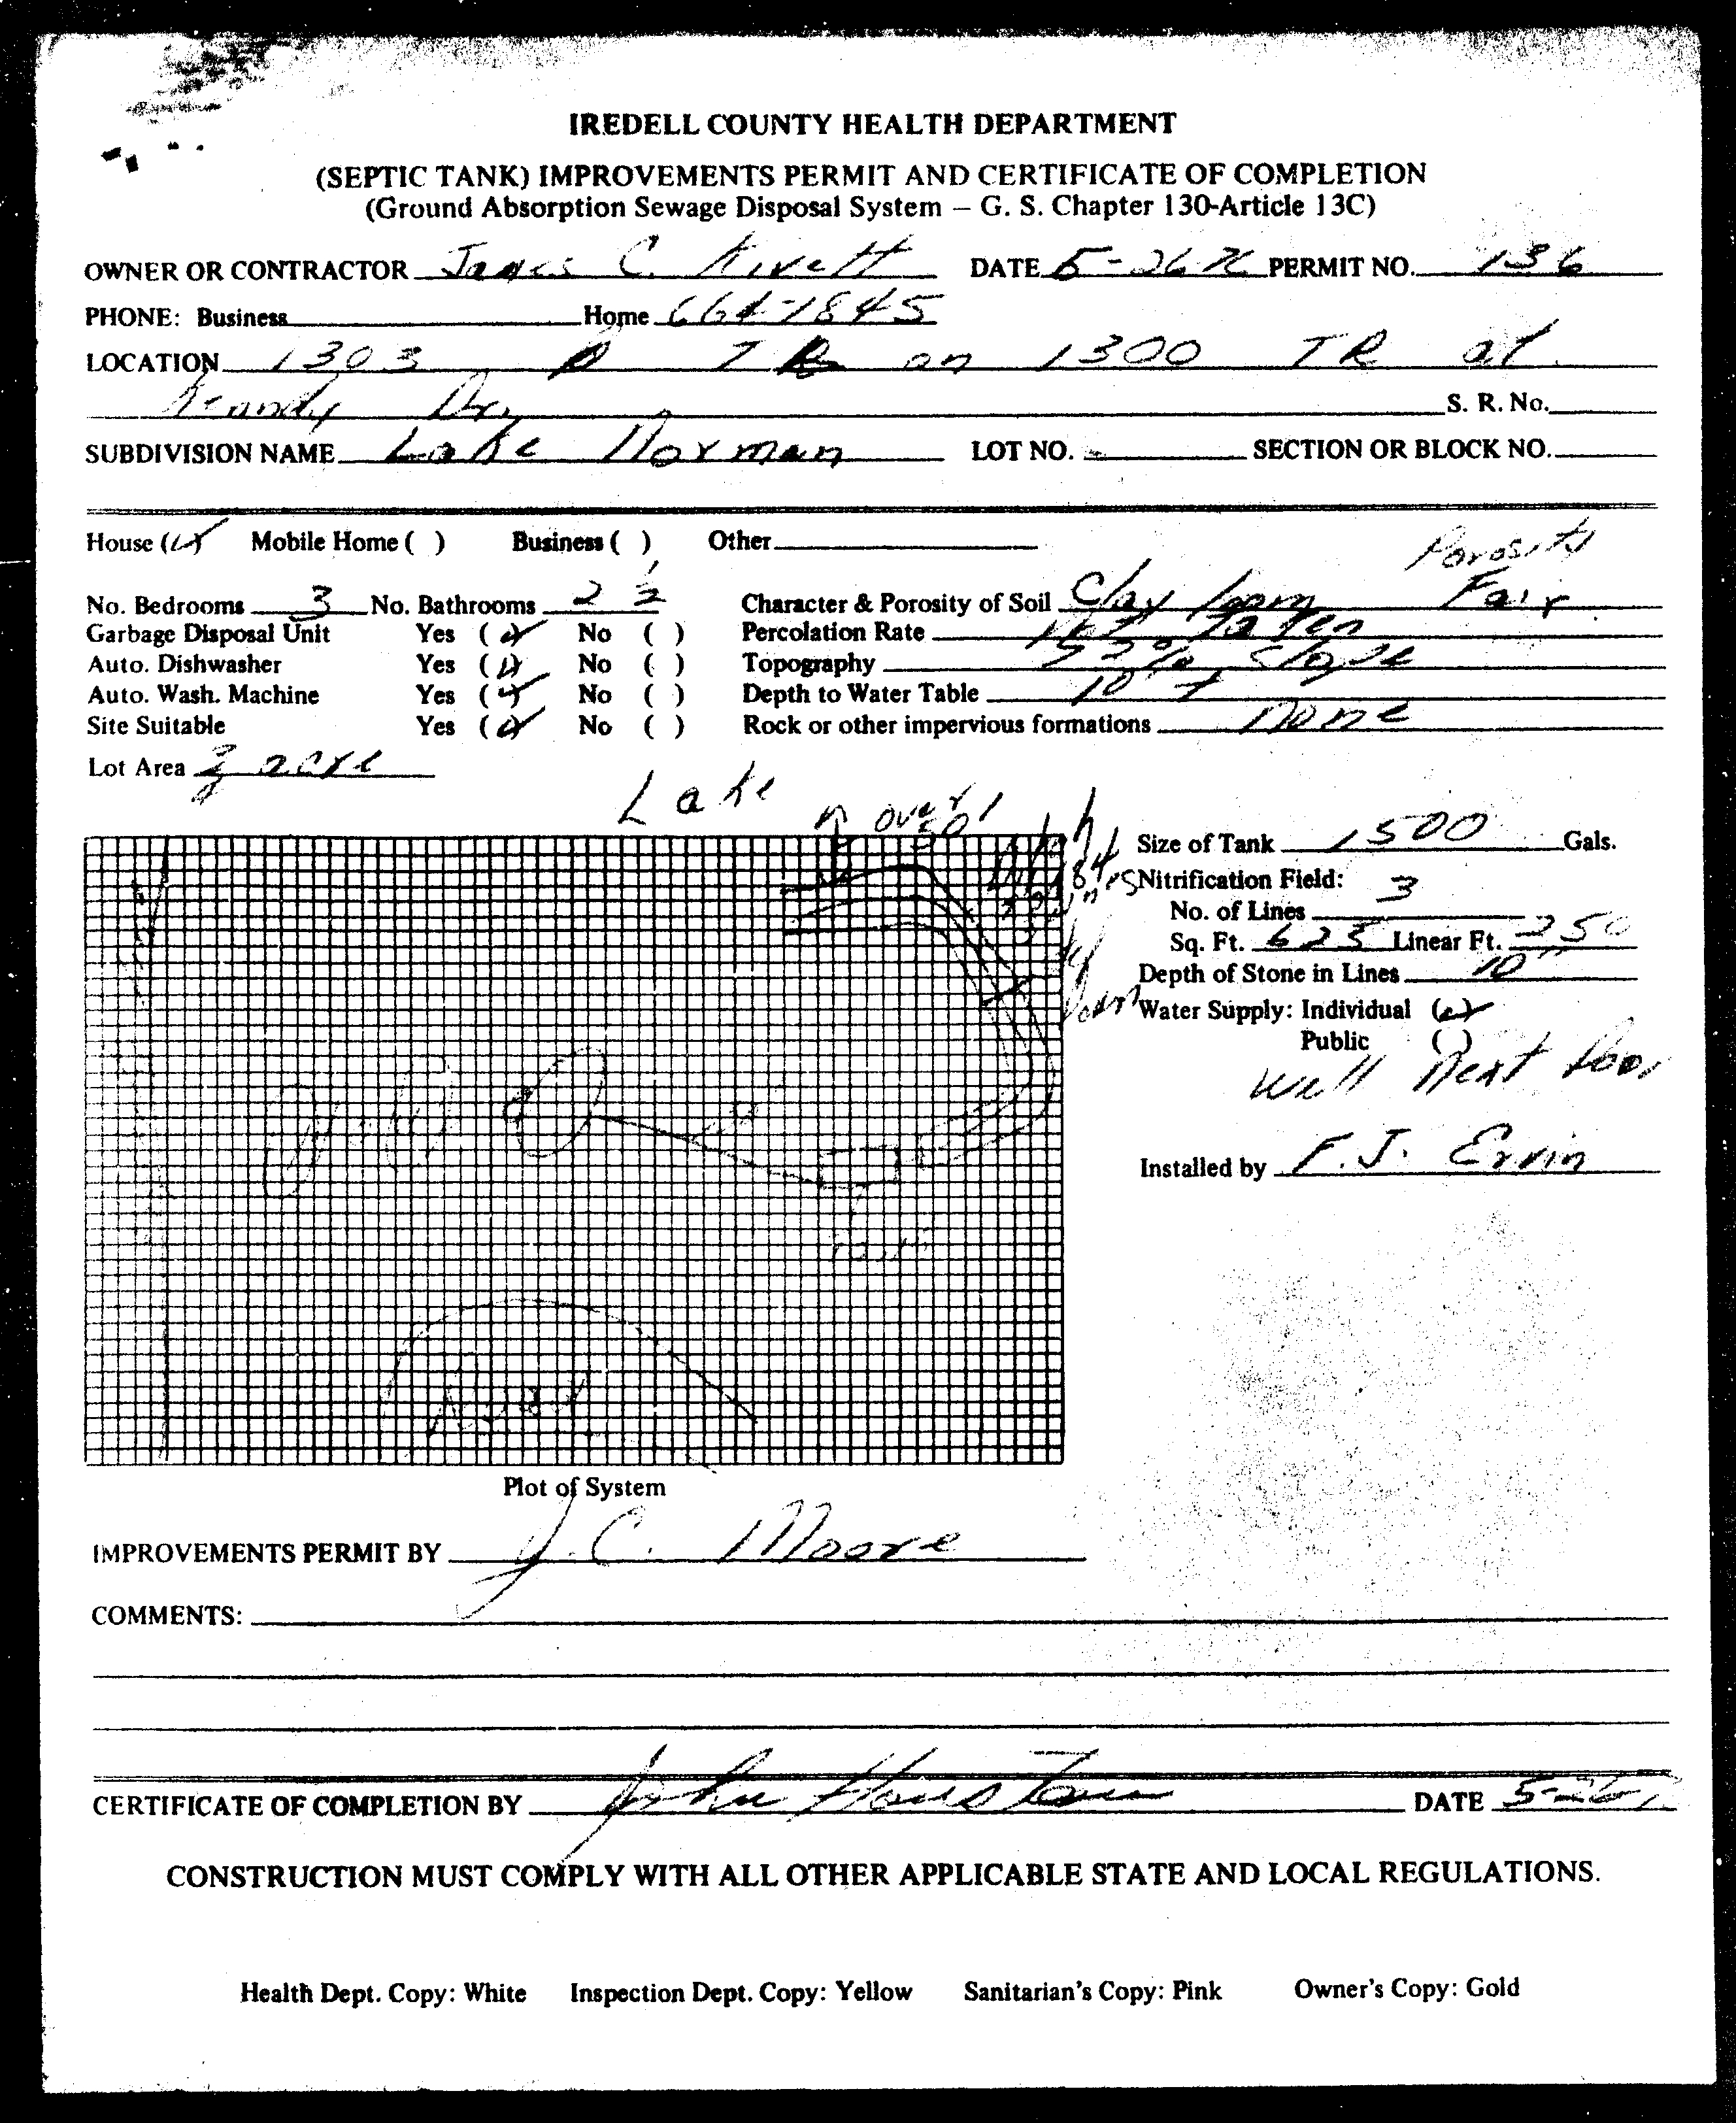 IREDELL COUNTY HEALTH DEPARTMENT
(SEPTIC TANK) IMPROVEMENTS PERMIT AND CERTIFICATE OF COMPLETION
(Ground Absorption Sewage Disposal System – G. S. Chapter 130-Article 13C)
OWNER OR CONTRACTOR James C. Kivett DATE 5-26-76 PERMIT NO. 136
PHONE: Business Home 664-1845
LOCATION 1303 TR on 1300 TR at
Dr. S. R. No.
SUBDIVISION NAME Lake Norman LOT NO. SECTION OR BLOCK NO.
House (✓) Mobile Home ( ) Business ( ) Other
Porosity
No. Bedrooms 3 No. Bathrooms 2 1/2 Character & Porosity of Soil Clay loam Fair
Garbage Disposal Unit Yes (✓) No ( ) Percolation Rate Not Taken
Auto. Dishwasher Yes (✓) No ( ) Topography % Slope
Auto. Wash. Machine Yes (✓) No ( ) Depth to Water Table 10' +
Site Suitable Yes (✓) No ( ) Rock or other impervious formations None
Lot Area acre
Lake
over 50'
Size of Tank 1500 Gals.
Nitrification Field:
No. of Lines 3
Sq. Ft. 625 Linear Ft. 250
Depth of Stone in Lines 10"
Water Supply: Individual (✓)
Public ( )
Well Next Door
Installed by F. J. Ervin
Plot of System
IMPROVEMENTS PERMIT BY J. C. Moore
COMMENTS:
CERTIFICATE OF COMPLETION BY John Houston DATE 5-26
CONSTRUCTION MUST COMPLY WITH ALL OTHER APPLICABLE STATE AND LOCAL REGULATIONS.
Health Dept. Copy: White Inspection Dept. Copy: Yellow Sanitarian's Copy: Pink Owner's Copy: Gold